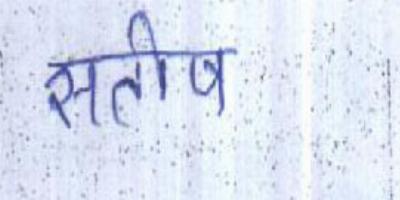 सतीष